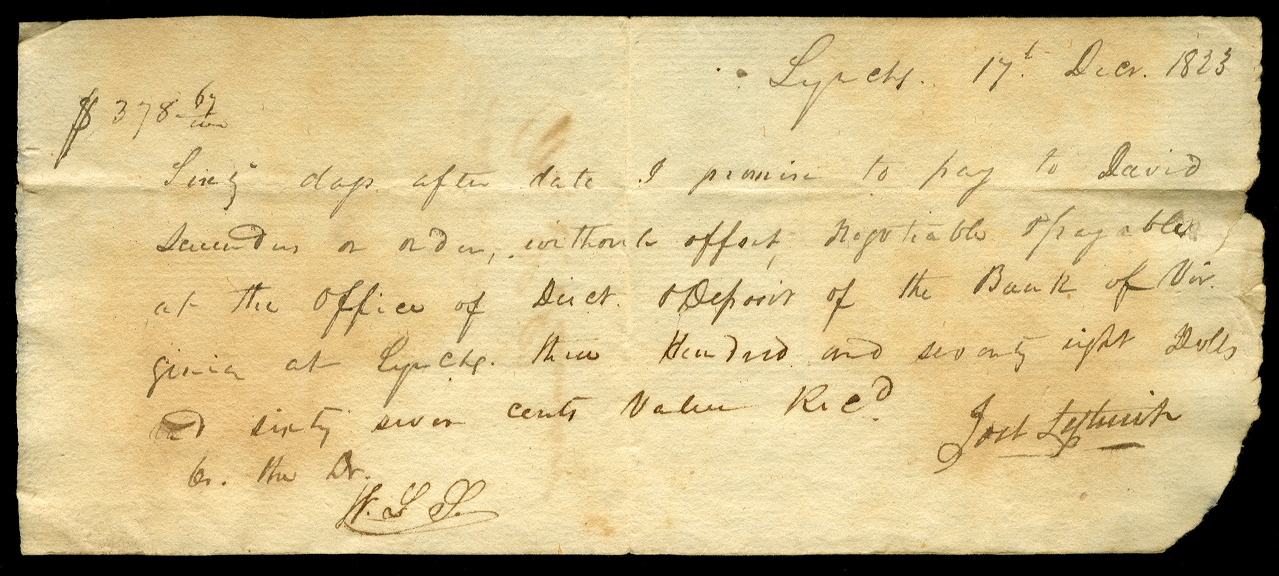 Lynchg. 17t. Decr. 1823
$ 378 67/100
Sixty days after date I promise to pay to David
Saunders or order, without offset, Negotiable & payable
at the Office of Disct. & Deposit of the Bank of Vir.
ginia at Lynchg. three Hundred and seventy eight Dolls
and sixty seven cents Value Recd.
Cr. the Dr.